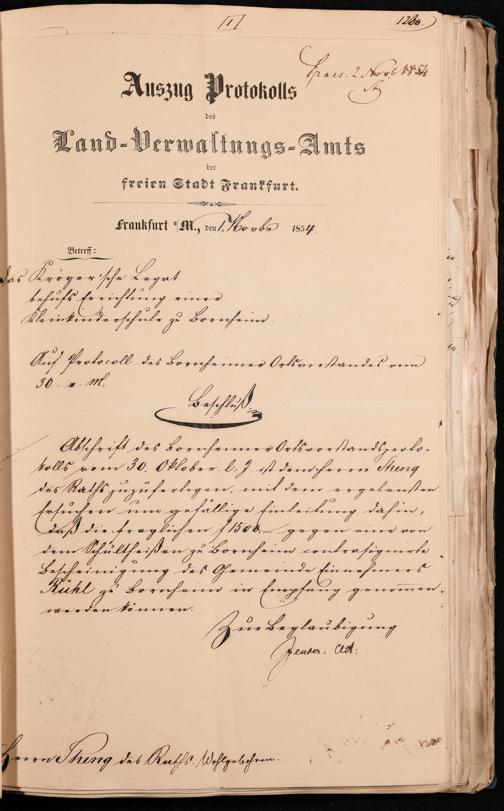 [1]
praes. 2 Novb 1854
Auszug Protokolls
des
Land-Verwaltungs-Amts
der
freien Stadt Frankfurt.
Frankfurt a/M., den 1. Novbr 1854.
Betreff:
das Kröger'sche Legat
behufs Errichtung einer
Kleinkinderschule zu Bornheim.
Auf Protocoll des Bornheimer Ortsvorstandes vom
30. v. M.
Beschluß
Abschrift des Bornheimer Ortsvorstandsproto-
kolls vom 30. Oktober l. J. ist dem Herrn Theng
des Raths zuzufertigen, mit dem ergebensten
Ersuchen um gefällige Einleitung dahin,
daß die fraglichen f 1500 gegen eine von
dem Schultheißen zu Bornheim contrasignirte
Bescheinigung des Gemeinde Einnehmers
Rühl zu Bornheim in Empfang genommen
werden können.
Zur Beglaubigung
Act:
Herrn Theng des Raths. Wohlgeboren.